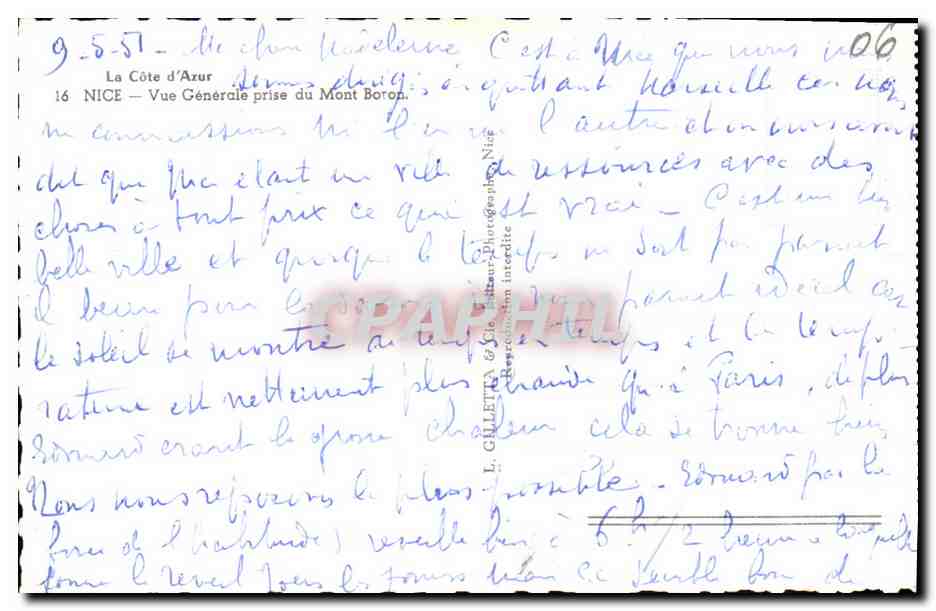 9-5-51 - Ma chère Madeleine C'est à Nice que nous
06
La Côte d'Azur
16 NICE — Vue Générale prise du Mont Boron.
sommes dirigés en quittant Marseille car nous
ne connaissions ni l'un ni l'autre et on nous avait
dit que Nice était une ville de ressources avec des
choses à tout prix ce qui est vrai - C'est une très
belle ville et quoique le temps ne soit pas
il beau pour les nous parait idéal car
le soleil se montre de temps en temps et la tempé-
rature est nettement plus chaude qu'à Paris, de plus
Edouard craint la grosse chaleur cela se trouve bien
Nous nous reposons le plus possible - Edouard par la
force de l'habitude reveille bien à 6h 1/2 heure à laquelle
sonne le reveil tous les jours mais semble bon de
L. GILLETTA & Cie, Editeur-Photographe, Nice
Reproduction interdite
CPAPHIL